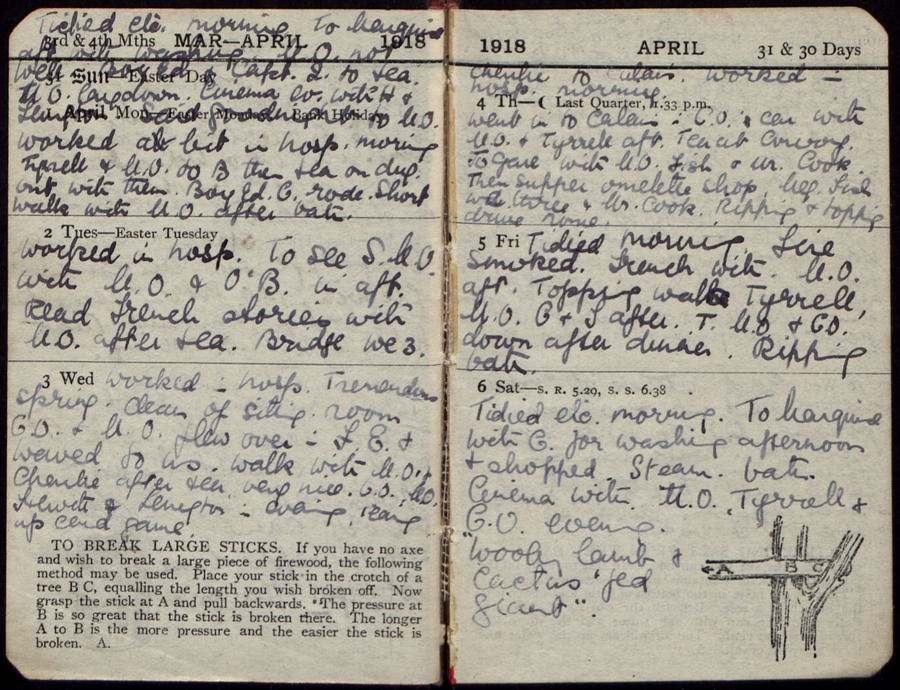 Tidied etc. morning. To
3rd & 4th Mths MAR—APRIL 1918
aft with washing. M.O. not
well. Capt. L. to tea.
31 Sun—Easter Day
M.O. lay down. Cinema ev. with H &
1 April Mon—Easter Monday. Bank Holiday
M.O.
worked a bit in hosp. morning
Tyrrell & M.O. to B then tea on dug
out with them. Boy Ed. C. rode. Short
walk with M.O. after bath.
2 Tues—Easter Tuesday
worked in hosp. To see S.M.O.
with M.O. & O'B. in aft.
Read French stories with
M.O. after tea. Bridge we 3.
3 Wed worked in hosp. Tremendous
spring clean of sitting room
C.O. & M.O. flew over in F.E. &
waved to us. walk with M.O. &
Charlie after tea very nice. C.O., M.O.
Hewitt & in evening,
up card game.
TO BREAK LARGE STICKS. If you have no axe
and wish to break a large piece of firewood, the following
method may be used. Place your stick in the crotch of a
tree B C, equalling the length you wish broken off. Now
grasp the stick at A and pull backwards. The pressure at
B is so great that the stick is broken there. The longer
A to B is the more pressure and the easier the stick is
broken. A.
1918 APRIL 31 & 30 Days
Charlie to Calais. worked in
hosp. morning.
4 Th—☾ Last Quarter, 1.33 p.m.
went in to Calais in C.O.'s car with
M.O. & Tyrrell aft. Tea at Convoy.
To Gare with M.O. & Mr. Cook
Then supper omelette shop,
& Mr. Cook. Ripping & topping
drive home.
5 Fri Tidied morning. Fire
smoked. French with M.O.
aft. Topping walk Tyrrell,
M.O. C & I after. T. M.O. & C.O.
down after dinner. Ripping
bath.
6 Sat—S. R. 5.29, S. S. 6.38
Tidied etc. morning. To
with C. for washing afternoon
& shopped. Steam bath.
Cinema with M.O., Tyrrell &
C.O. evening.
"Wooly lamb &
Cactus fed
Giant".
A B C